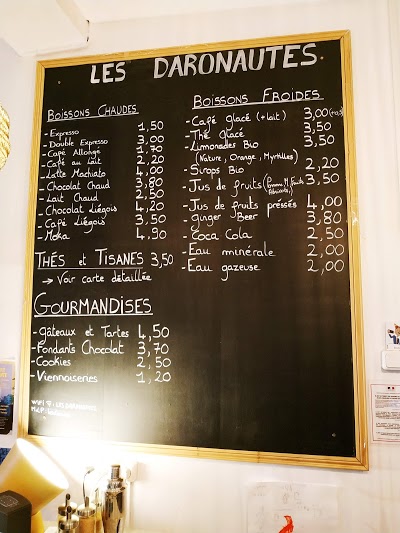 LES DARONAUTES
BOISSONS CHAUDES
- Expresso 1,50
- Double Expresso 3,00
- Café Allongé 1,70
- Café au lait 2,20
- Latte Machiato 4,00
- Chocolat Chaud 3,80
- Lait Chaud 2,50
- Chocolat Liégois 4,20
- Café Liégois 3,50
- Moka 4,90
THÉS et TISANES 3,50
→ Voir carte détaillée
GOURMANDISES
- Gâteaux et Tartes 4,50
- Fondants Chocolat 3,70
- Cookies 2,50
- Viennoiseries 1,20
BOISSONS FROIDES
- Café glacé (+ lait) 3,00
- Thé glacé 3,50
- Limonades Bio 3,50
(Nature, Orange, Myrtilles)
- Sirops Bio 2,20
- Jus de fruits 3,50
- Jus de fruits pressés 4,00
- Ginger Beer 3,80
- Coca Cola 2,50
- Eau minérale 2,00
- Eau gazeuse 2,00